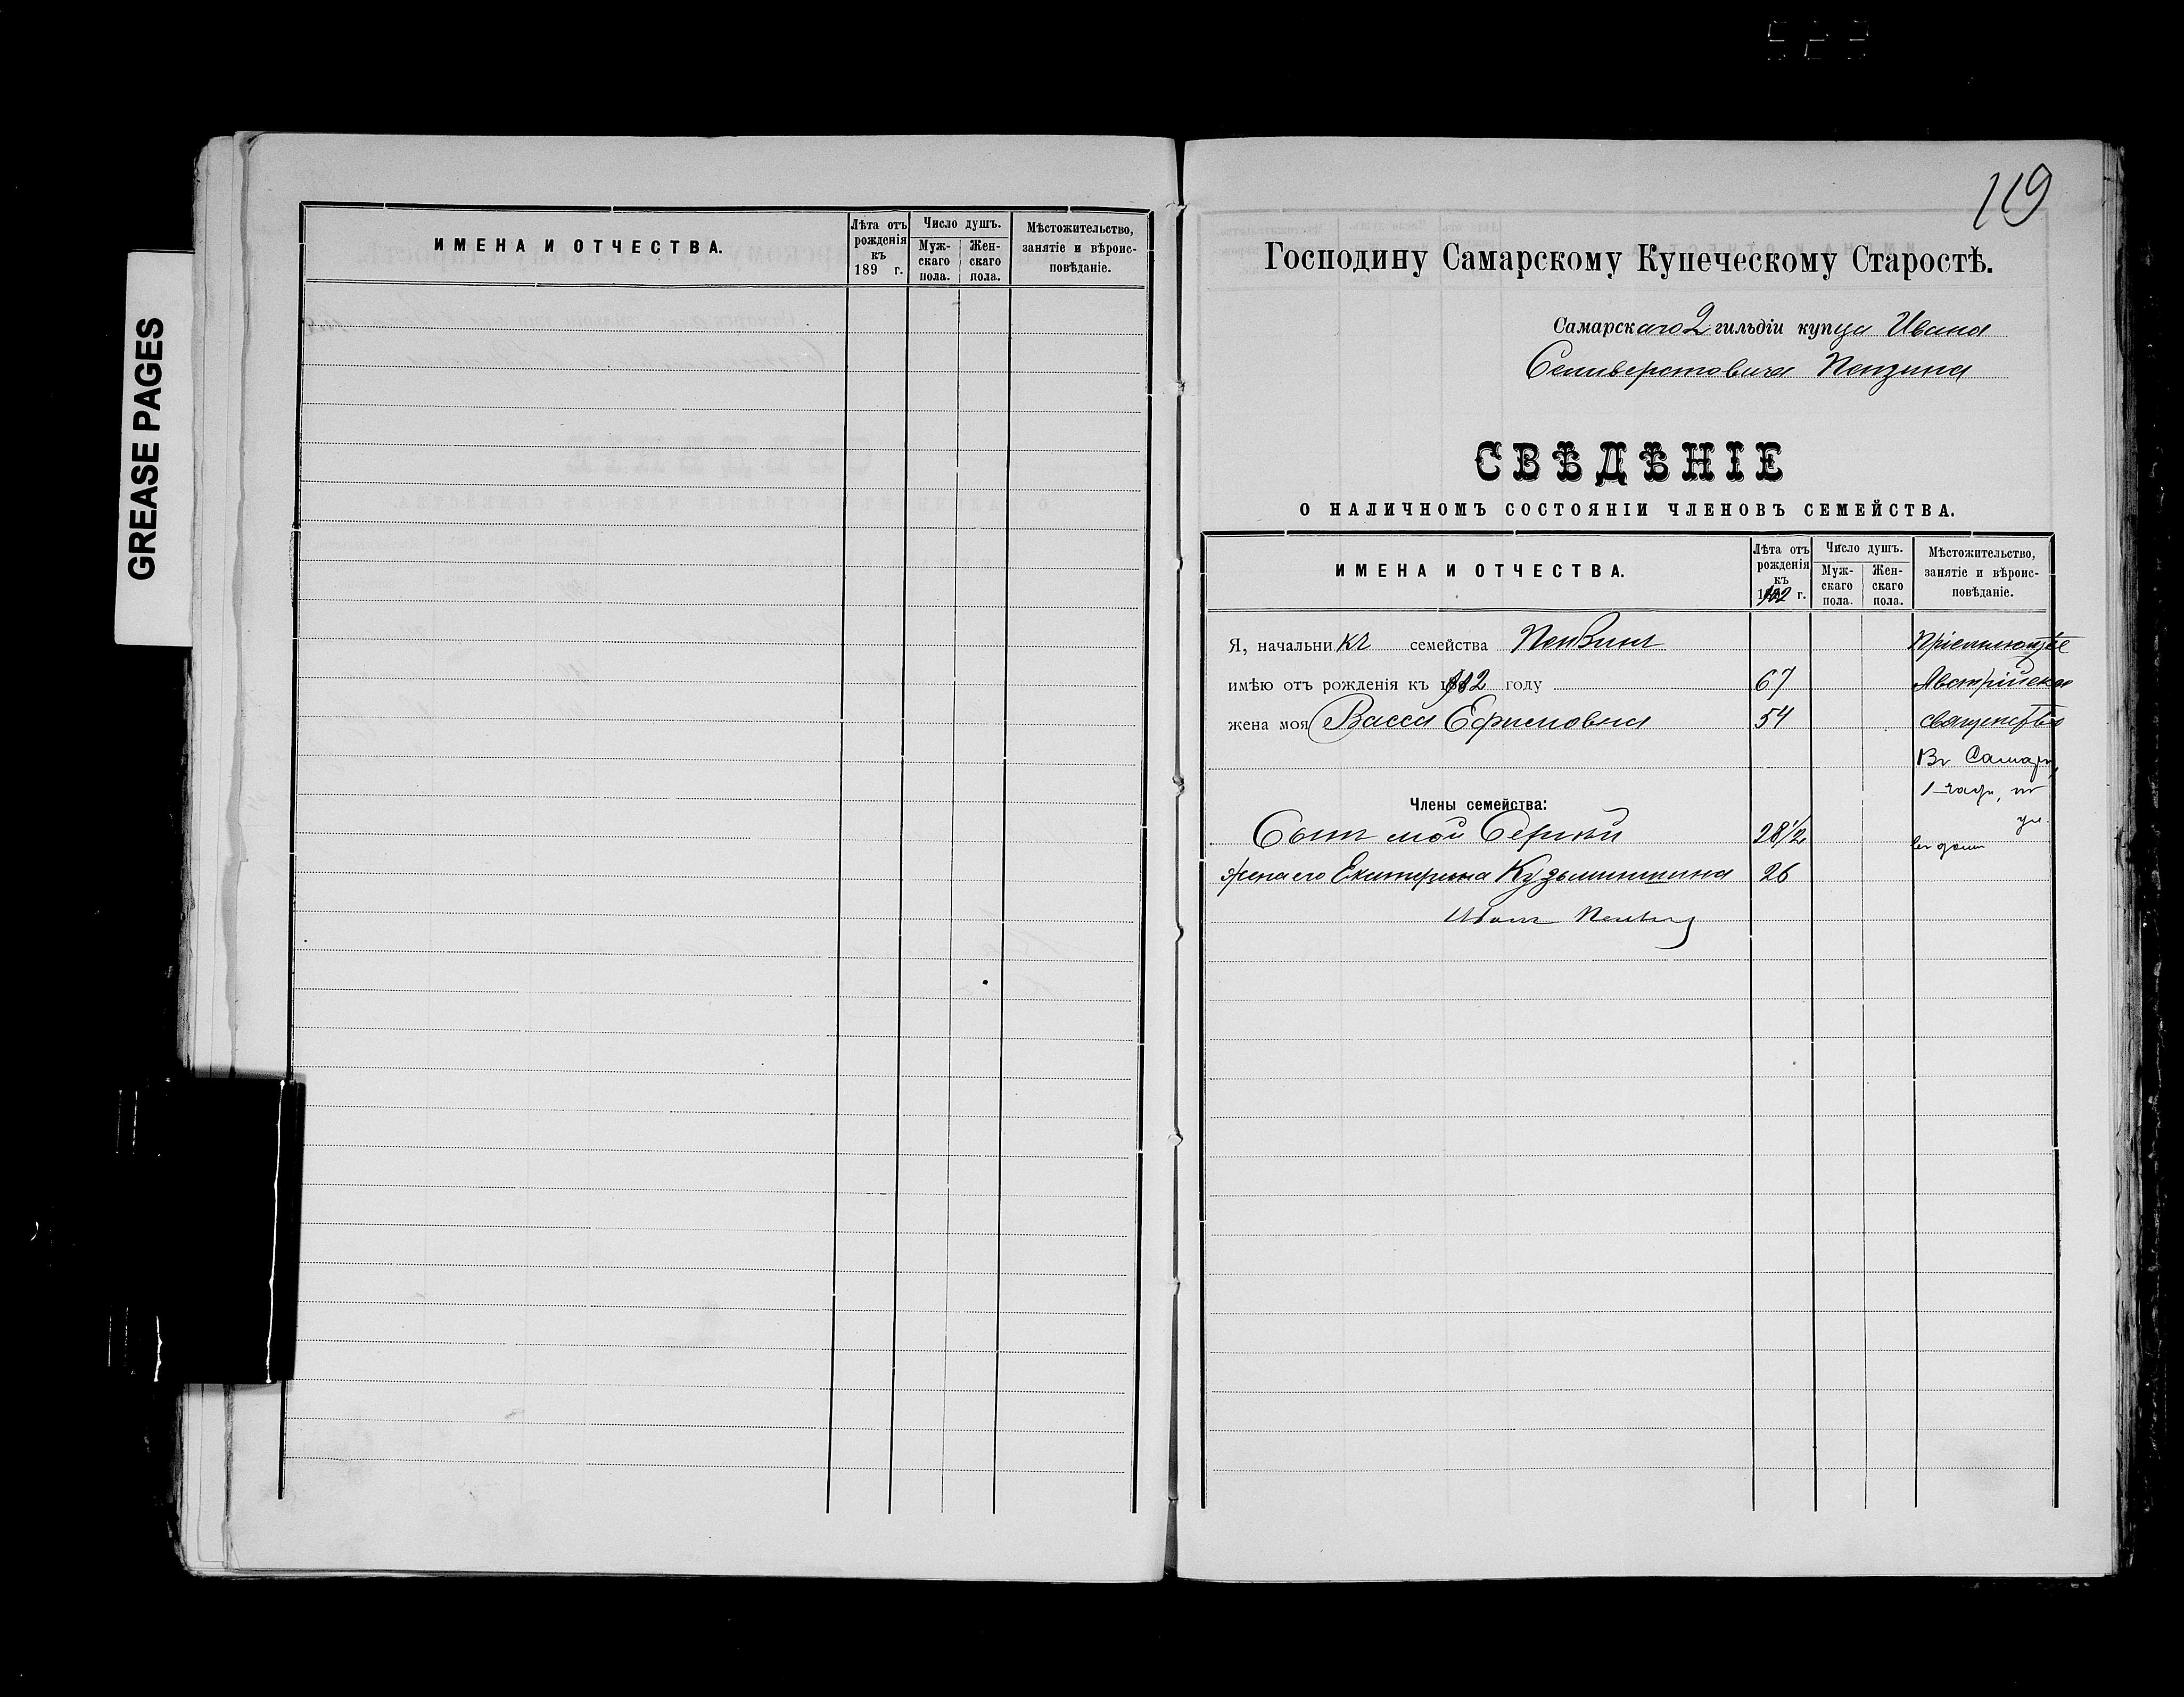 GREASE PAGES
ИМЕНА И ОТЧЕСТВА.
Лѣта отъ рожденія къ 189 г.
Число душъ.
Муж-скаго пола.
Жен-скаго пола.
Мѣстожительство, занятіе и вѣроис-повѣданіе.
119
Господину Самарскому Купеческому Старостѣ.
Самарскаго 2 гильдіи купца Ивана
Селиверстовича Пензина
СВѢДѢНІЕ
О НАЛИЧНОМЪ СОСТОЯНІИ ЧЛЕНОВЪ СЕМЕЙСТВА.
ИМЕНА И ОТЧЕСТВА.
Лѣта отъ рожденія къ г.
Число душъ.
Муж-скаго пола.
Жен-скаго пола.
Мѣстожительство, занятіе и вѣроис-повѣданіе.
Я, начальникъ семейства Пензинъ Пріемлющіе
имѣю отъ рожденія къ году 67 Австрійское
жена моя Васса Ефимовна 54 священство
Въ Самарѣ,
1 части,
Члены семейства: ул.
Сынъ мой Сергѣй 28 1/2
жена его Екатерина Кузьминишна 26
Иванъ Пензинъ